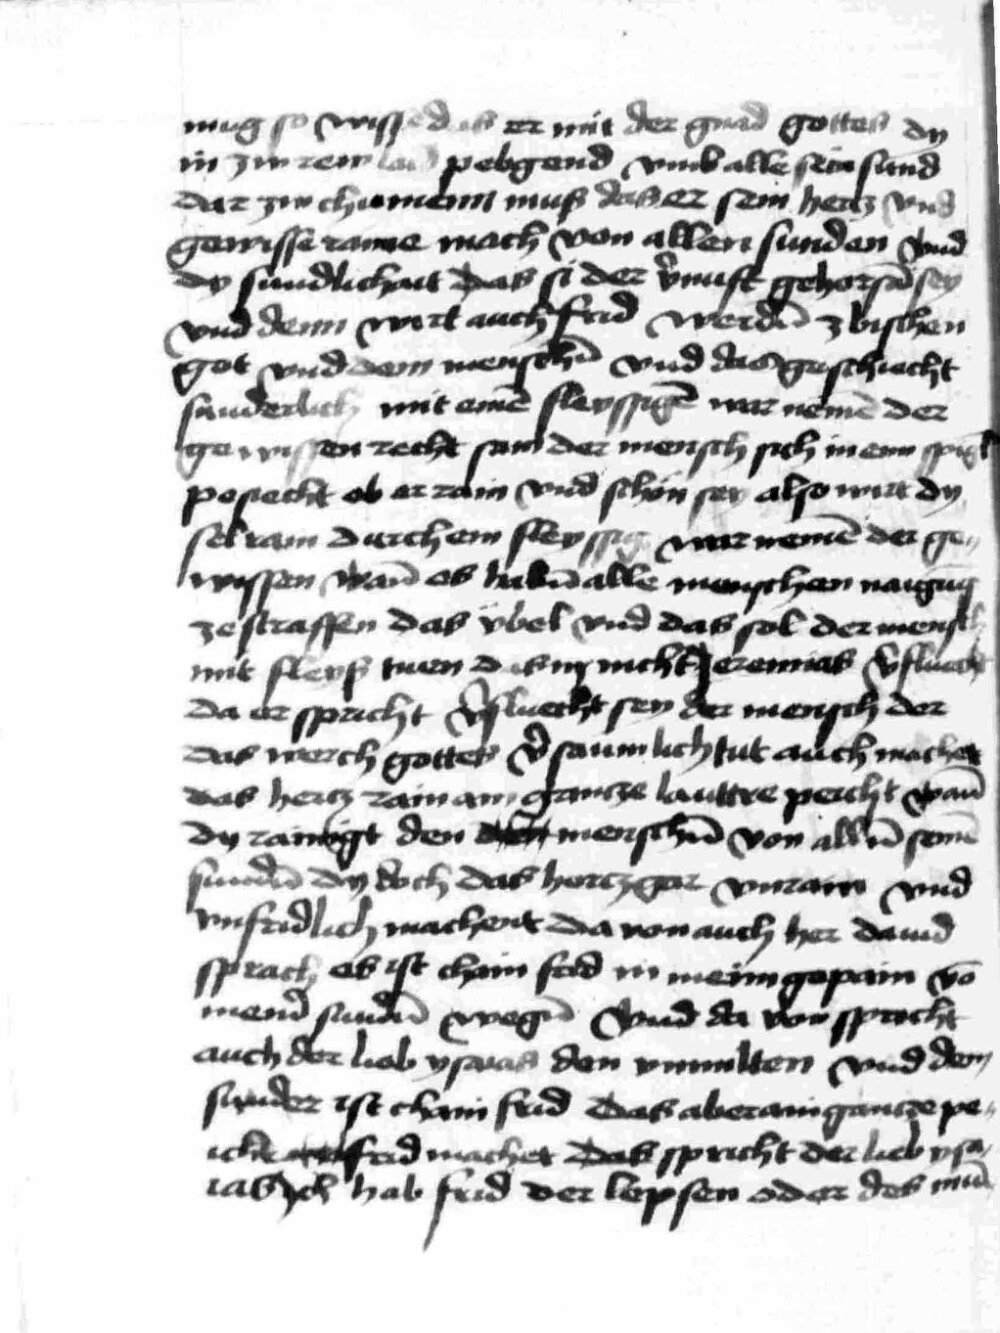 mug so wissed das er mit der gnad gottes dy
in zw rew laid pebgend vmb alle sein sund
dar zw chumenn mus das er sein hertz vnd
gewisse raine mach von allen sunden vnd
dy sundlichait das si der v̓nuft gehorsā sey
vnd denn wirt auch frid werdn̄ zbischen
got vnd dem menschn̄ vnd das geschiecht
sunderlich mit einē fleyssigē war nemē der
gewissen recht sam der mensch sich in eim spigl
posiecht ob er rain vnd schön sey also wirt dy
sel rain durch ein fleyssig war nemē der ge„
wissen wan̄ es habn̄ alle menschen naigūg
ze straffen das vbel vnd das sol der mensch
mit fleys tuen das in nicht Jeremias v̓fluecht
da er spricht v̓fluecht sey der mensch der
das werch gottes v̓saumlich tut auch machet
das hertz rain ain gantze lauttre peicht wan̄
dy rainigt den menschn̄ von alln̄ seinē
sundn̄ dy doch das hertz gar vnrain vnd
vnfridlich machent da von auch her dauid
sprach es ist chain frid in meim gepain vō
meind̓ sundn̄ wegn̄ Vnd da von spricht
auch der lieb ysaias den vnmilten vnd dem„
sunder ist chain frid das aber ain gantze pe„
icht frid machet das spricht der lieb ysa„
ias ych hab frid der lepsen oder des mūd